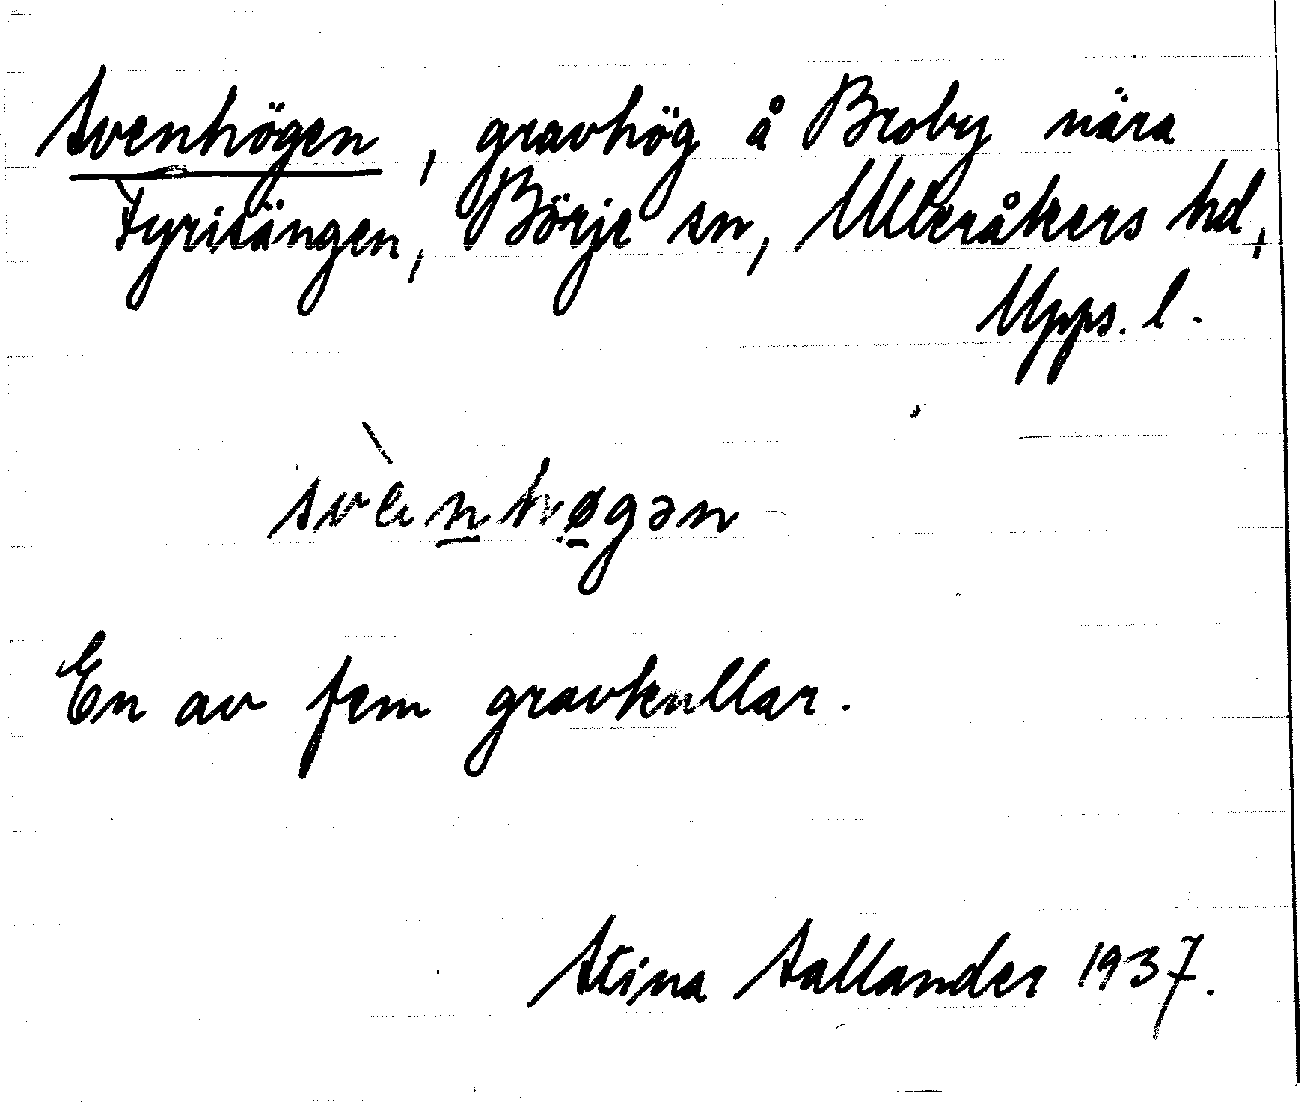 Svenhögen, gravhög å Broby nära
Fyrisängen, Börje sn, Ulleråkers hd,
Upps. l.
svènhøgən
En av fem gravkullar.
Stina Sallander 1937.